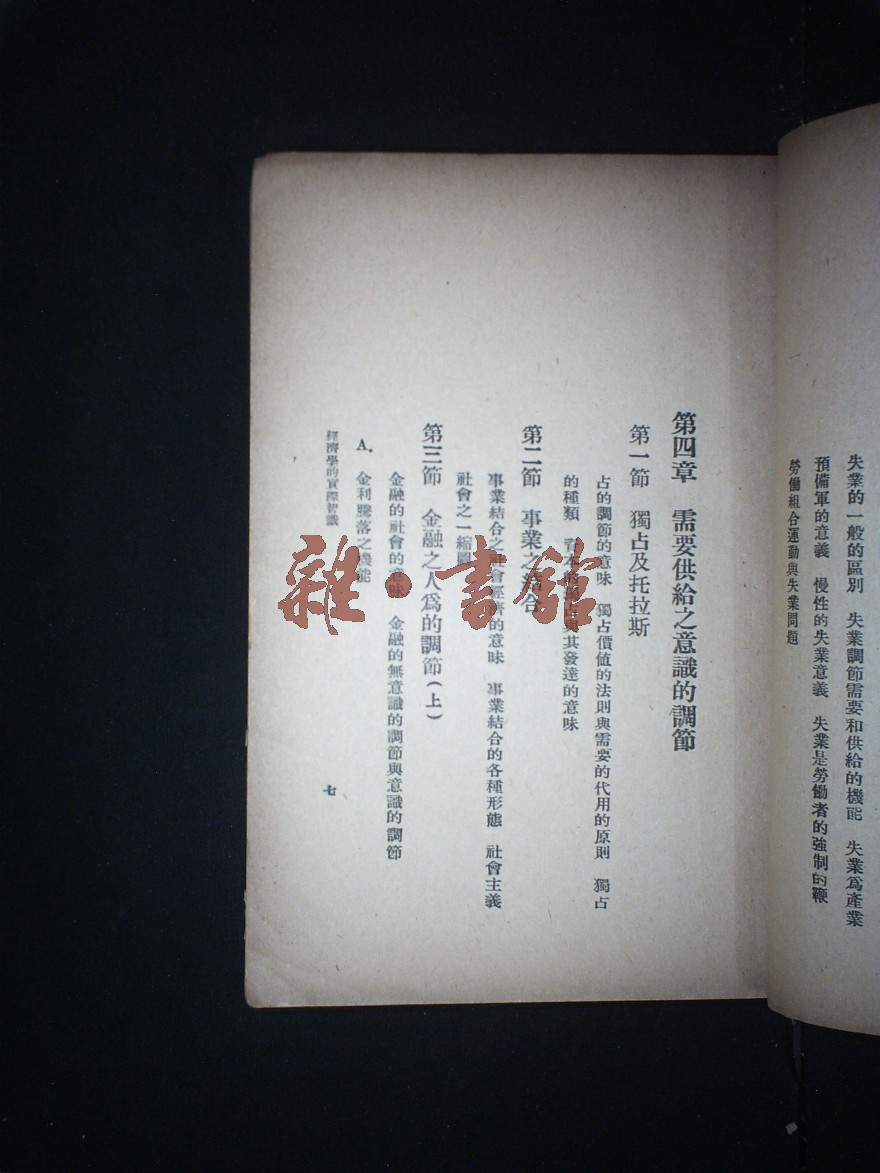 失業的一般的區別　失業調節需要和供給的機能　失業爲產業
預備軍的意義　慢性的失業意義　失業是勞働者的強制的鞭
勞働組合運動與失業問題
第四章　需要供給之意識的調節
第一節　獨占及托拉斯
占的調節的意味　獨占價値的法則與需要的代用的原則　獨占
的種類　資本的獨占與其發達的意味
第二節　事業之結合
事業結合之社會經濟的意味　事業結合的各種形態　社會主義
社會之一縮圖
第三節　金融之人爲的調節(上)
金融的社會的意味　金融的無意識的調節與意識的調節
A.　金利騰落之機能
經濟學的實際智識
七
雜·書館